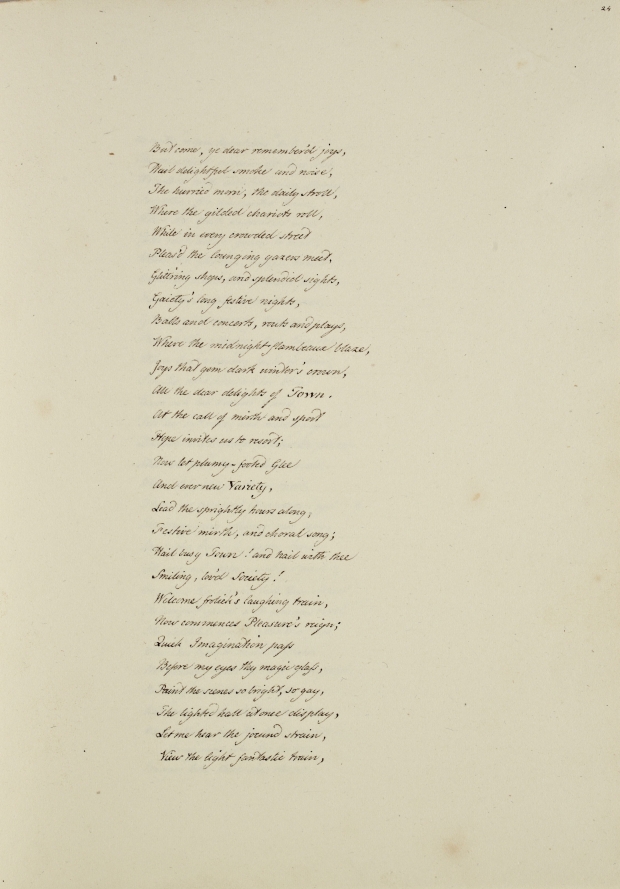 24
But come, ye dear remember'd joys,
Hail delightful smoke and noise,
The hurried morn, the daily stroll,
Where the gilded chariots roll,
While in every crowded street
Pleas'd the lounging gazers meet.
Glitt'ring shops, and splendid sights,
Gaiety's long festive nights,
Balls and concerts, routs and plays,
Where the midnight flambeaux blaze,
Joys that gem dark winter's crown,
All the dear delights of Town.
At the call of mirth and sport
Hope invites us to resort;
Now let plumy-footed Glee
And ever new Variety,
Lead the sprightly hours along,
Festive mirth, and choral song;
Hail busy Town! and hail with thee
Smiling, lov'd Society!
Welcome frolick's laughing train,
Now commences Pleasure's reign;
Quick Imagination pass
Before my eyes thy magic glass,
Paint the scenes so bright, so gay,
The lighted hall at once display,
Let me hear the jocund strain,
View the light fantastic train,